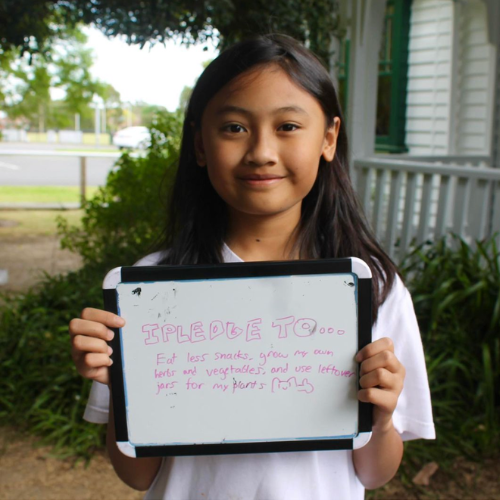 I PLEDGE TO...
Eat less snacks, grow my own
herbs and vegetables and use leftover
jars for my plants